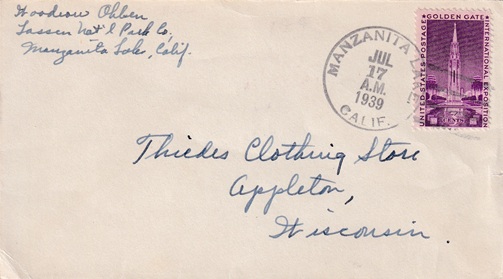 Woodrow Ohlsen
Lassen Nat'l Park Co,
Manzanita Lake, Calif.
MANZANITA LAKE
JUL
17
A.M.
1939
CALIF.
GOLDEN GATE
UNITED STATES POSTAGE
INTERNATIONAL EXPOSITION
Thiedes Clothing Store
Appleton,
Wisconsin.